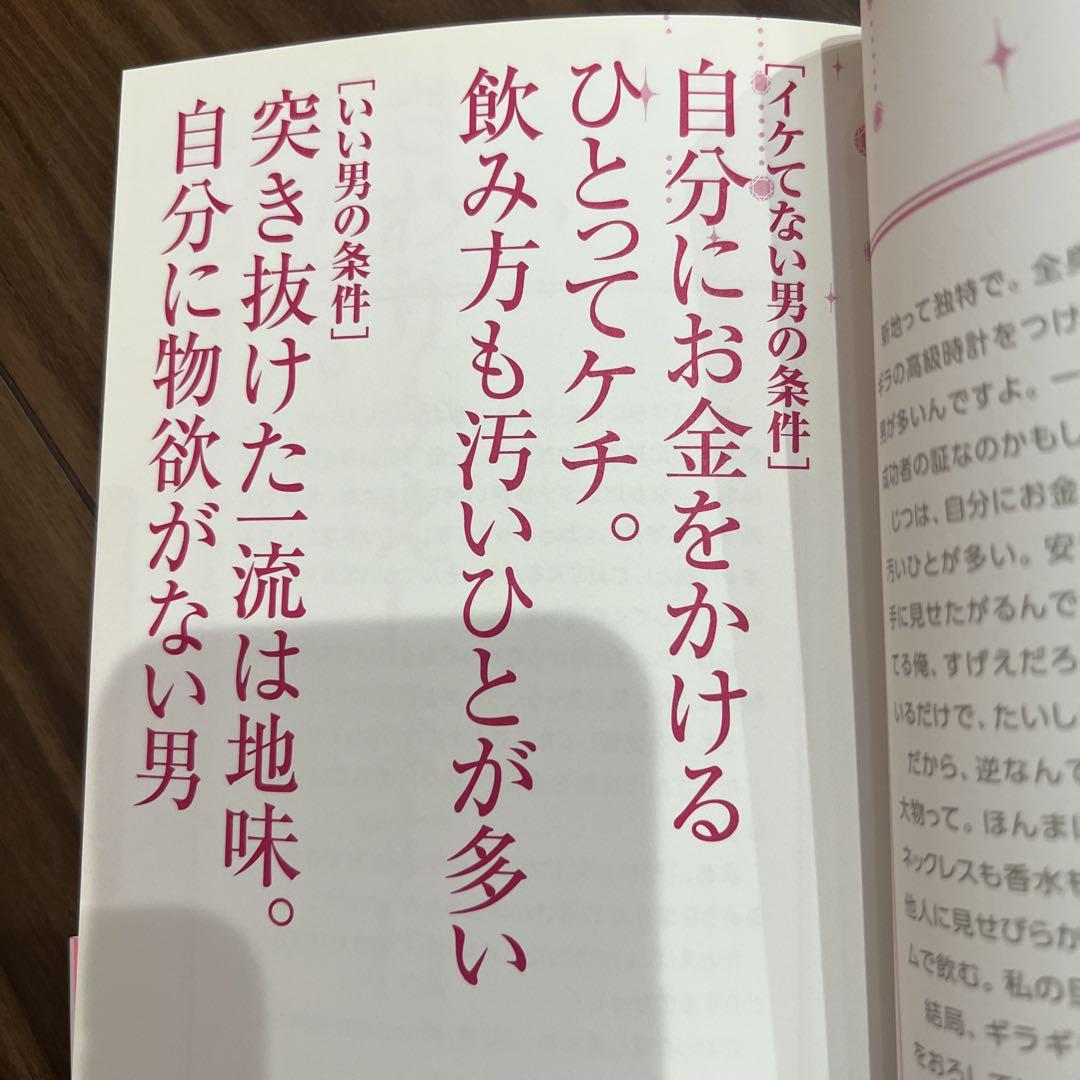 新地って独特で。全身
ギラの高級時計をつけ
男が多いんですよ。一
成功者の証なのかもし
じつは、自分にお金
汚いひとが多い。安
手に見せたがるんで
てる俺、すげえだろ
いるだけで、たいし
だから、逆なんて
大物って。ほんまに
ネックレスも香水も
他人に見せびらか
ムで飲む。私の
結局、ギラギ
をおろして
[イケてない男の条件]
自分にお金をかける
ひとってケチ。
飲み方も汚いひとが多い
[いい男の条件]
突き抜けた一流は地味。
自分に物欲がない男